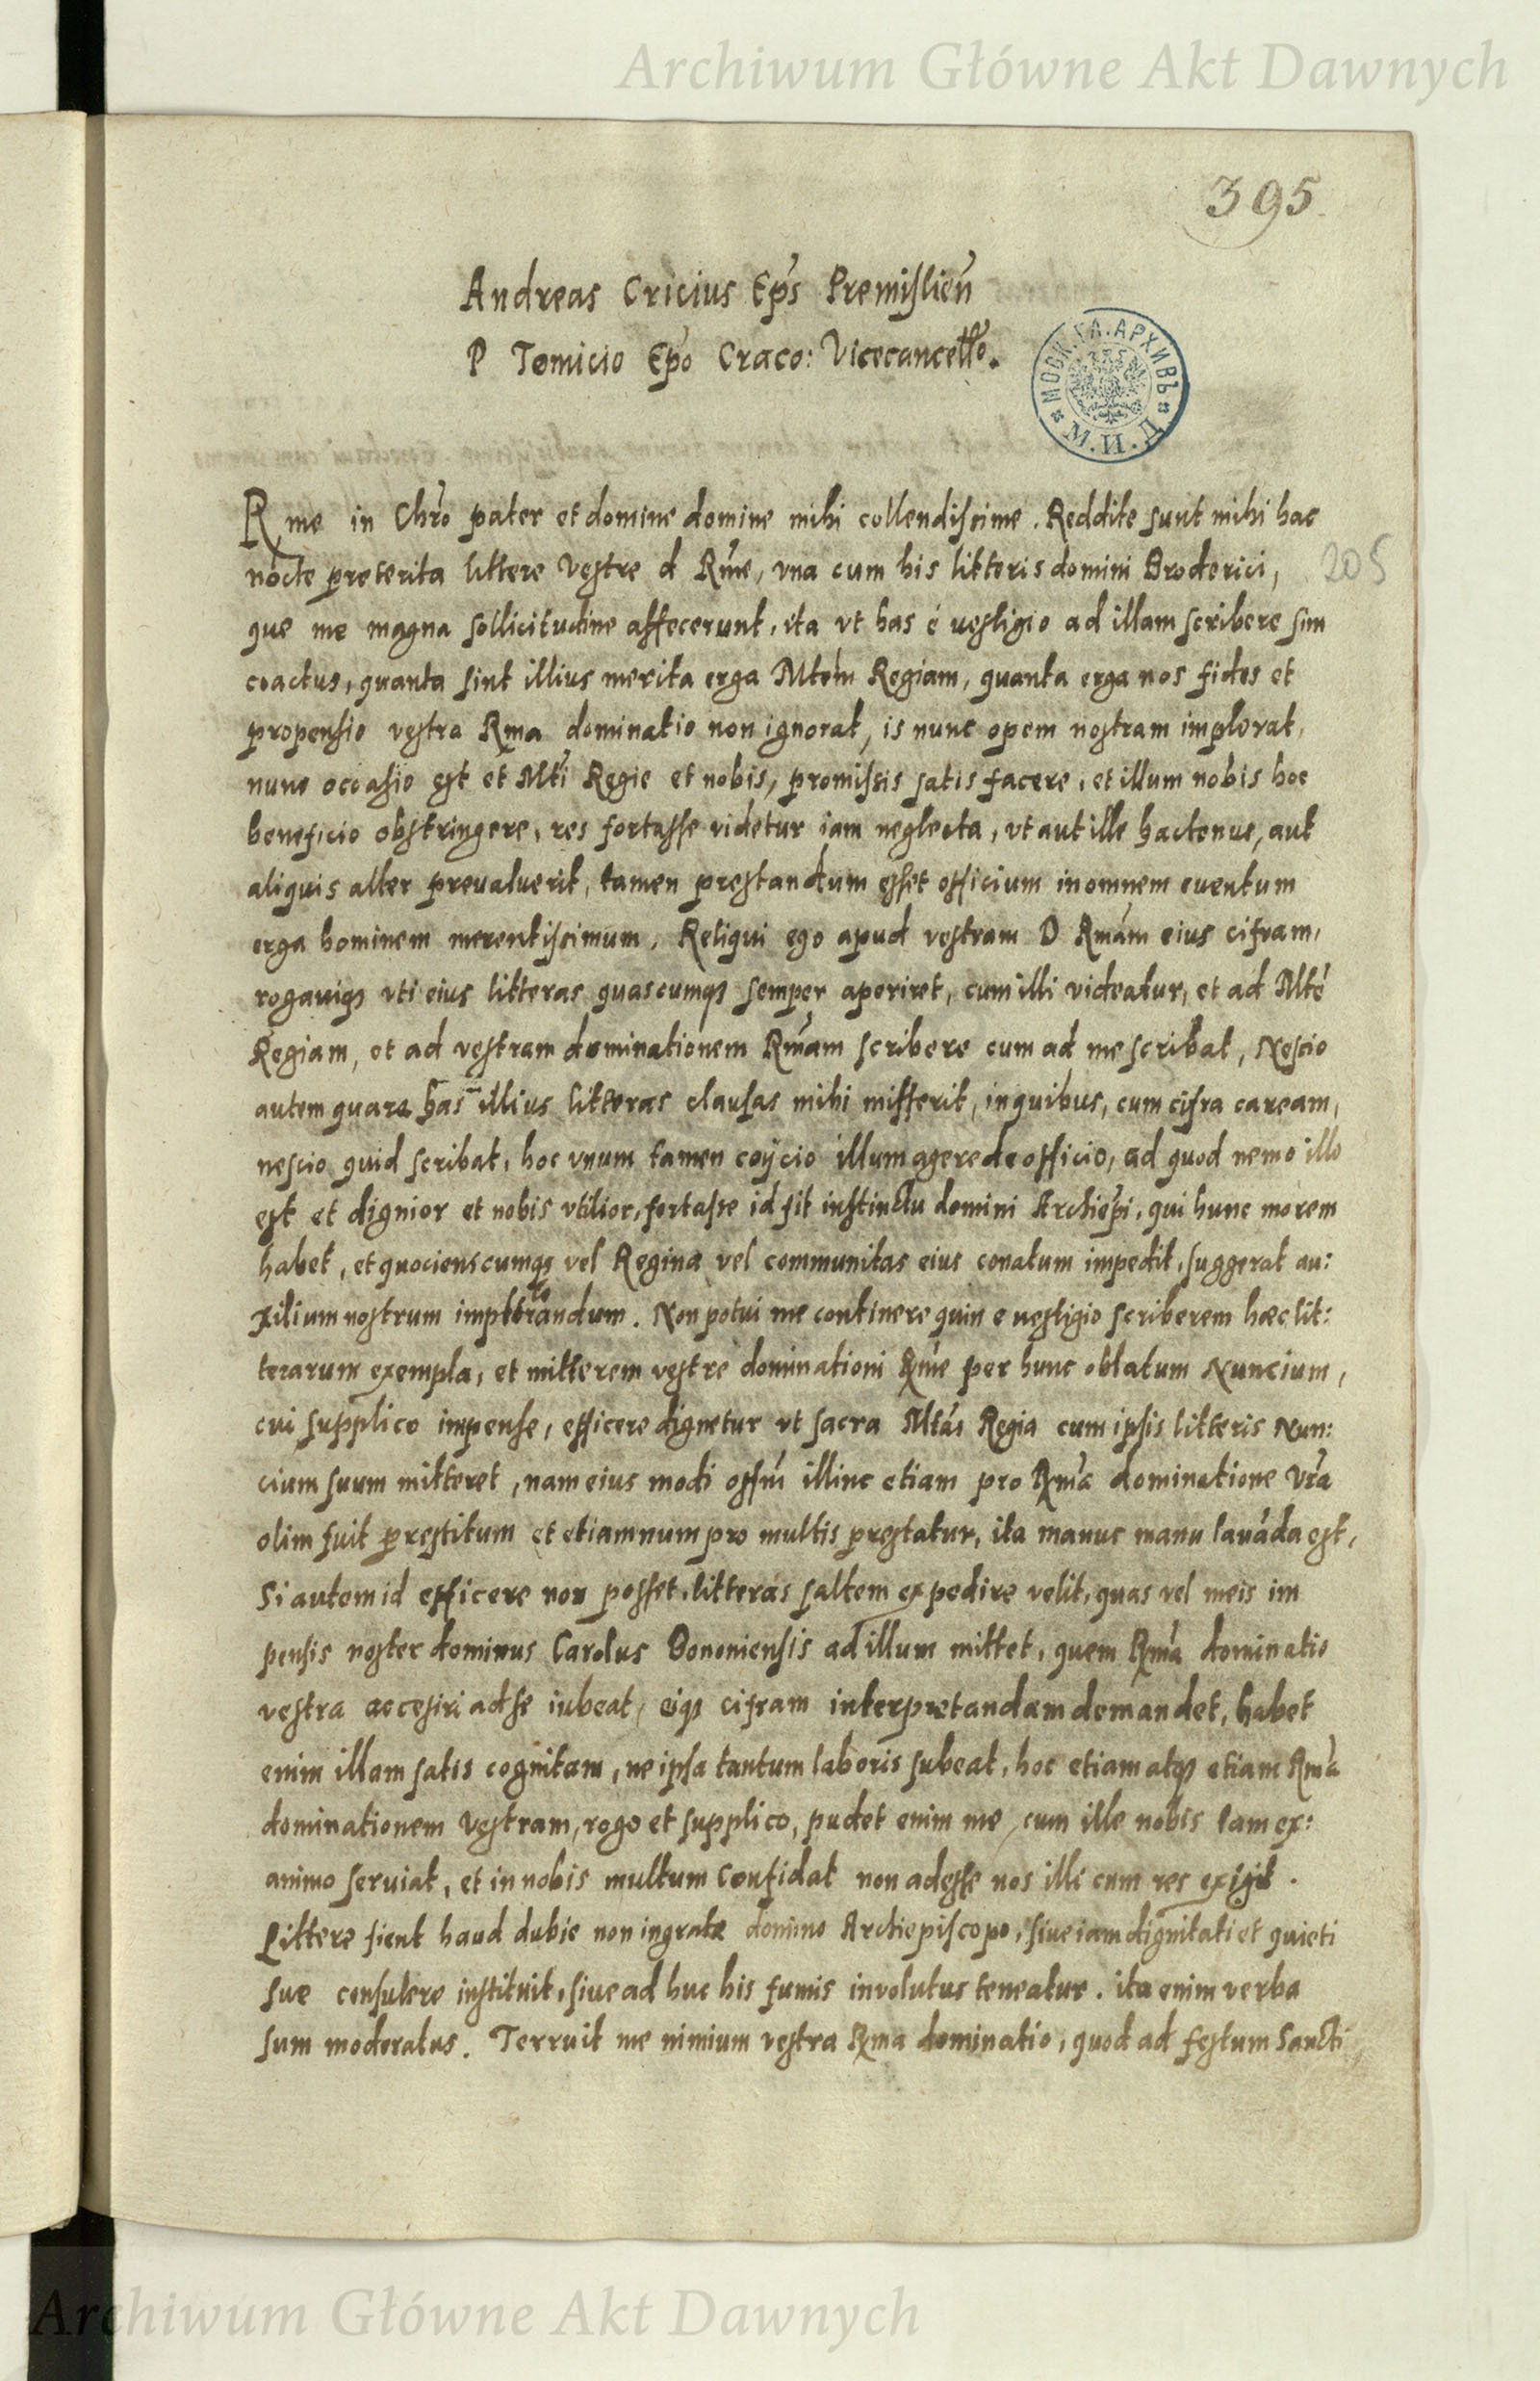 Archiwum Główne Akt Dawnych
395
Andreas Cricius Ep̃s Premislieñ
P Tomicio Ep̃o Craco: Vicecancell̃o.
МОСК. ГЛ. АРХИВЪ * М. И. Д. *
Rme in Chr̃o pater et domine domine mihi collendissime. Reddite sunt mihi hac
nocte preterita littere Vestre d Rm̃e, vna cum his litteris domini Broderici,
205
que me magna sollicitudine affecerunt, ita vt has è uestigio ad illam scribere sim
coactus, quanta sint illius merita erga Mtem̃ Regiam, quanta erga nos fides et
propensio vestra Rma dominatio non ignorat, is nunc opem nostram implorat,
nunc occasio est et Mtĩ Regie et nobis, promissis satis facere, et illum nobis hoc
beneficio obstringere, res fortasse videtur iam neglecta, vt aut ille hactenus, aut
aliquis alter preualuerit, tamen prestandum esset officium in omnem euentum
erga hominem merentissimum. Reliqui ego apud vestram D Rmãm eius cifram,
rogauiqꝫ vti eius litteras quascumqꝫ semper aperiret, cum illi videatur, et ad Mtẽ
Regiam, et ad vestram dominationem Rmãm scribere cum ad me scribat, Nescio
autem quare has illius litteras clausas mihi misserit, in quibus, cum cifra caream,
nescio quid scribat, hoc vnum tamen coijcio illum agere de officio, ad quod nemo illo
est et dignior et nobis vtilior, fortasse id fit instinctu domini Archiep̃i, qui hunc morem
habet, et quocienscumqꝫ vel Regina vel communitas eius conatum impedit, suggerat au:
xilium nostrum implorandum. Non potui me continere quin e uestigio scriberem hæc lit:
terarum exempla, et mitterem vestre dominationi Rm̃e per hunc oblatum Nuncium,
cui supplico impense, efficere dignetur vt sacra Mtãs Regia cum ipsis litteris Nun:
cium suum mitteret, nam eius modi offm̃ illinc etiam pro Rm̃a dominatione Vr̃a
olim fuit prestitum et etiamnum pro multis prestatur, ita manus manu lauãda est,
Si autem id efficere non posset, litteras saltem expedire velit, quas vel meis im
pensis noster dominus Carolus Bononiensis ad illum mittet, quem Rm̃a dominatio
vestra accesiri ad se iubeat, eiqꝫ cifram interpretandam demandet, habet
enim illam satis cognitam, ne ipsa tantum laboris subeat, hoc etiam atqꝫ etiam Rm̃a
dominationem Vestram, rogo et supplico, pudet enim me, cum ille nobis tam ex:
animo seruiat, et in nobis multum confidat non adesse nos illi cum res exigit.
Littere fient haud dubie non ingratæ domino Archiepiscopo, siue iam dignitati et quieti
sue consulere instituit, siue ad huc his fumis inuolutus teneatur. ita enim verba
sum moderatus. Terruit me nimium vestra Rma dominatio, quod ad festum Sancti
Archiwum Główne Akt Dawnych